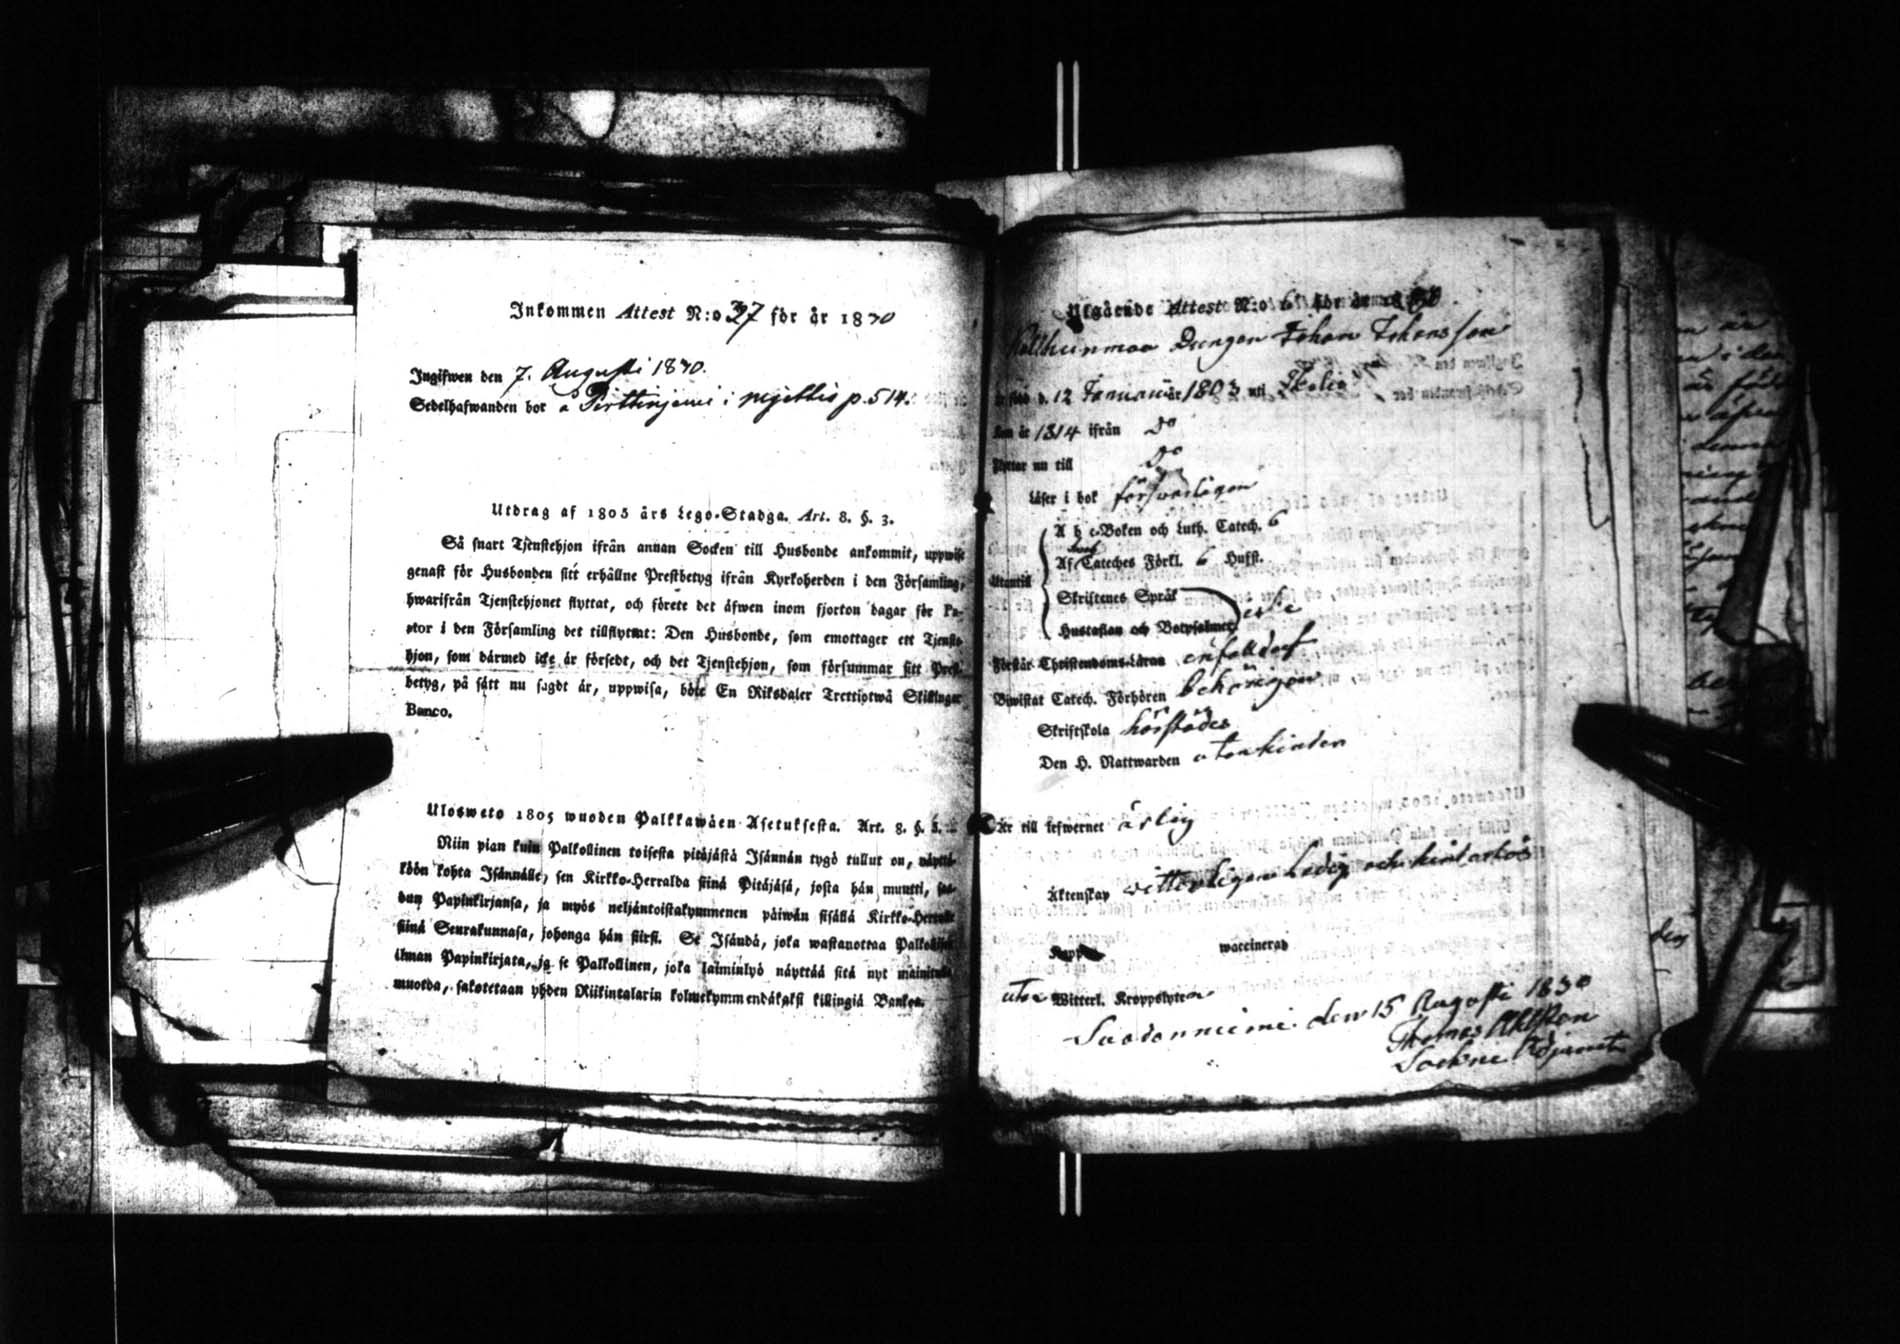 Inkommen Attest N:o 37 för år 1830
Ingifwen den 7. Augusti 1830.
Sedelhafwanden bor å Pirttinjemi i p. 514.
Utdrag af 1805 års Lego-Stadga. Art. 8. §. 3.
Så snart Tjenstehjon ifrån annan Socken till Husbonde ankommit, uppwise
genast för Husbonden sitt erhållne Prestbetyg ifrån Kyrkoherden i den Församling,
hwarifrån Tjenstehjonet flyttat, och förete det äfwen inom fjorton dagar för Pa-
stor i den Församling det tillflyttat: Den Husbonde, som emottager ett Tjenste-
hjon, som därmed icke är försedt, och det Tjenstehjon, som försummar sitt Prest-
betyg, på sätt nu sagdt är, uppwisa, böte En Riksdaler Trettiotwå Skillingar
Banco.
Ulosweto 1805 wuoden Palkkawäen Asetuksesta. Art. 8. §. 3.
Niin pian kuin Palkollinen toisesta pitäjästä Isännän tygö tullut on, näyttä-
köön kohta Isännälle, sen Kirkko-Herralda siinä Pitäjäsä, josta hän muutti, saa-
dun Papinkirjansa, ja myös neljäntoistakymmenen päiwän sisällä Kirkko-Herralle
siinä Seurakunnasa, johonga hän siirsi. Se Isändä, joka wastanottaa Palkollisen
ilman Papinkirjata, ja se Palkollinen, joka laiminlyö näyttää sitä nyt mainitulla
muotoa, sakotetaan yhden Riikintalarin kolmekymmendäkaksi killingiä Bankoa.
Utgående Attest N:o 6 för år 1830.
Drengen Johan Johansson
är född d. 12 Januarii år 1803 uti
Kom år 1814 ifrån Do
Flyttar nu till Do
Läser i bok försvarligen
A b c-Boken och Luth. Catech. 6
Af Cateches Förkl. 6 Hufst.
Utantill
Skriftenes Språk
Hustaflan och Botpsalmer
Förstår Christendoms-Läran enfaldigt
Bewistat Catech. Förhören behörigen
Skriftskola härstädes
Den H. Nattwarden utan hinder
Är till lefwernet ärlig
Äktenskap vitterligen Ledig och hinderlös
Koppor waccinerad
utan Witterl. Kroppslyten
Saodanniemi den 15 Augusti 1830
Thomas Ahlsten
Sockne